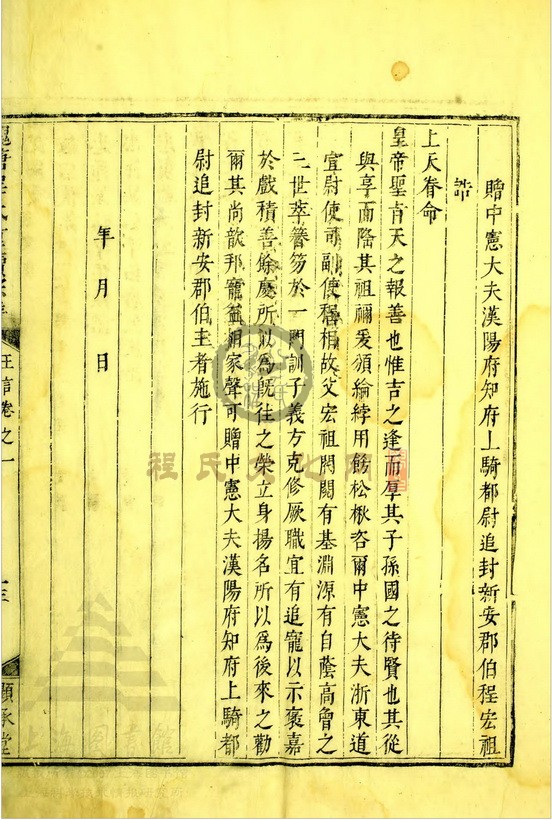 贈中憲大夫漢陽府知府上騎都尉追封新安郡伯程宏祖
誥
上天眷命
皇帝聖旨天之報善也惟吉之逢而厚其子孫國之待賢也其從
與享而隆其祖禰爰頒綸綍用飭松楸咨爾中憲大夫浙東道
宣尉使司副使程相故父宏祖閥閱有基淵源有自蔭高曾之
三世萃簪笏於一門訓子義方克修厥職宜有追寵以示褒嘉
於戲積善餘慶所以為既往之榮立身揚名所以為後來之勸
爾其尚歆邦寵益綿家聲可贈中憲大夫漢陽府知府上騎都
尉追封新安郡伯主者施行
年月日
程氏
王言卷之一
顯承堂
程氏文化